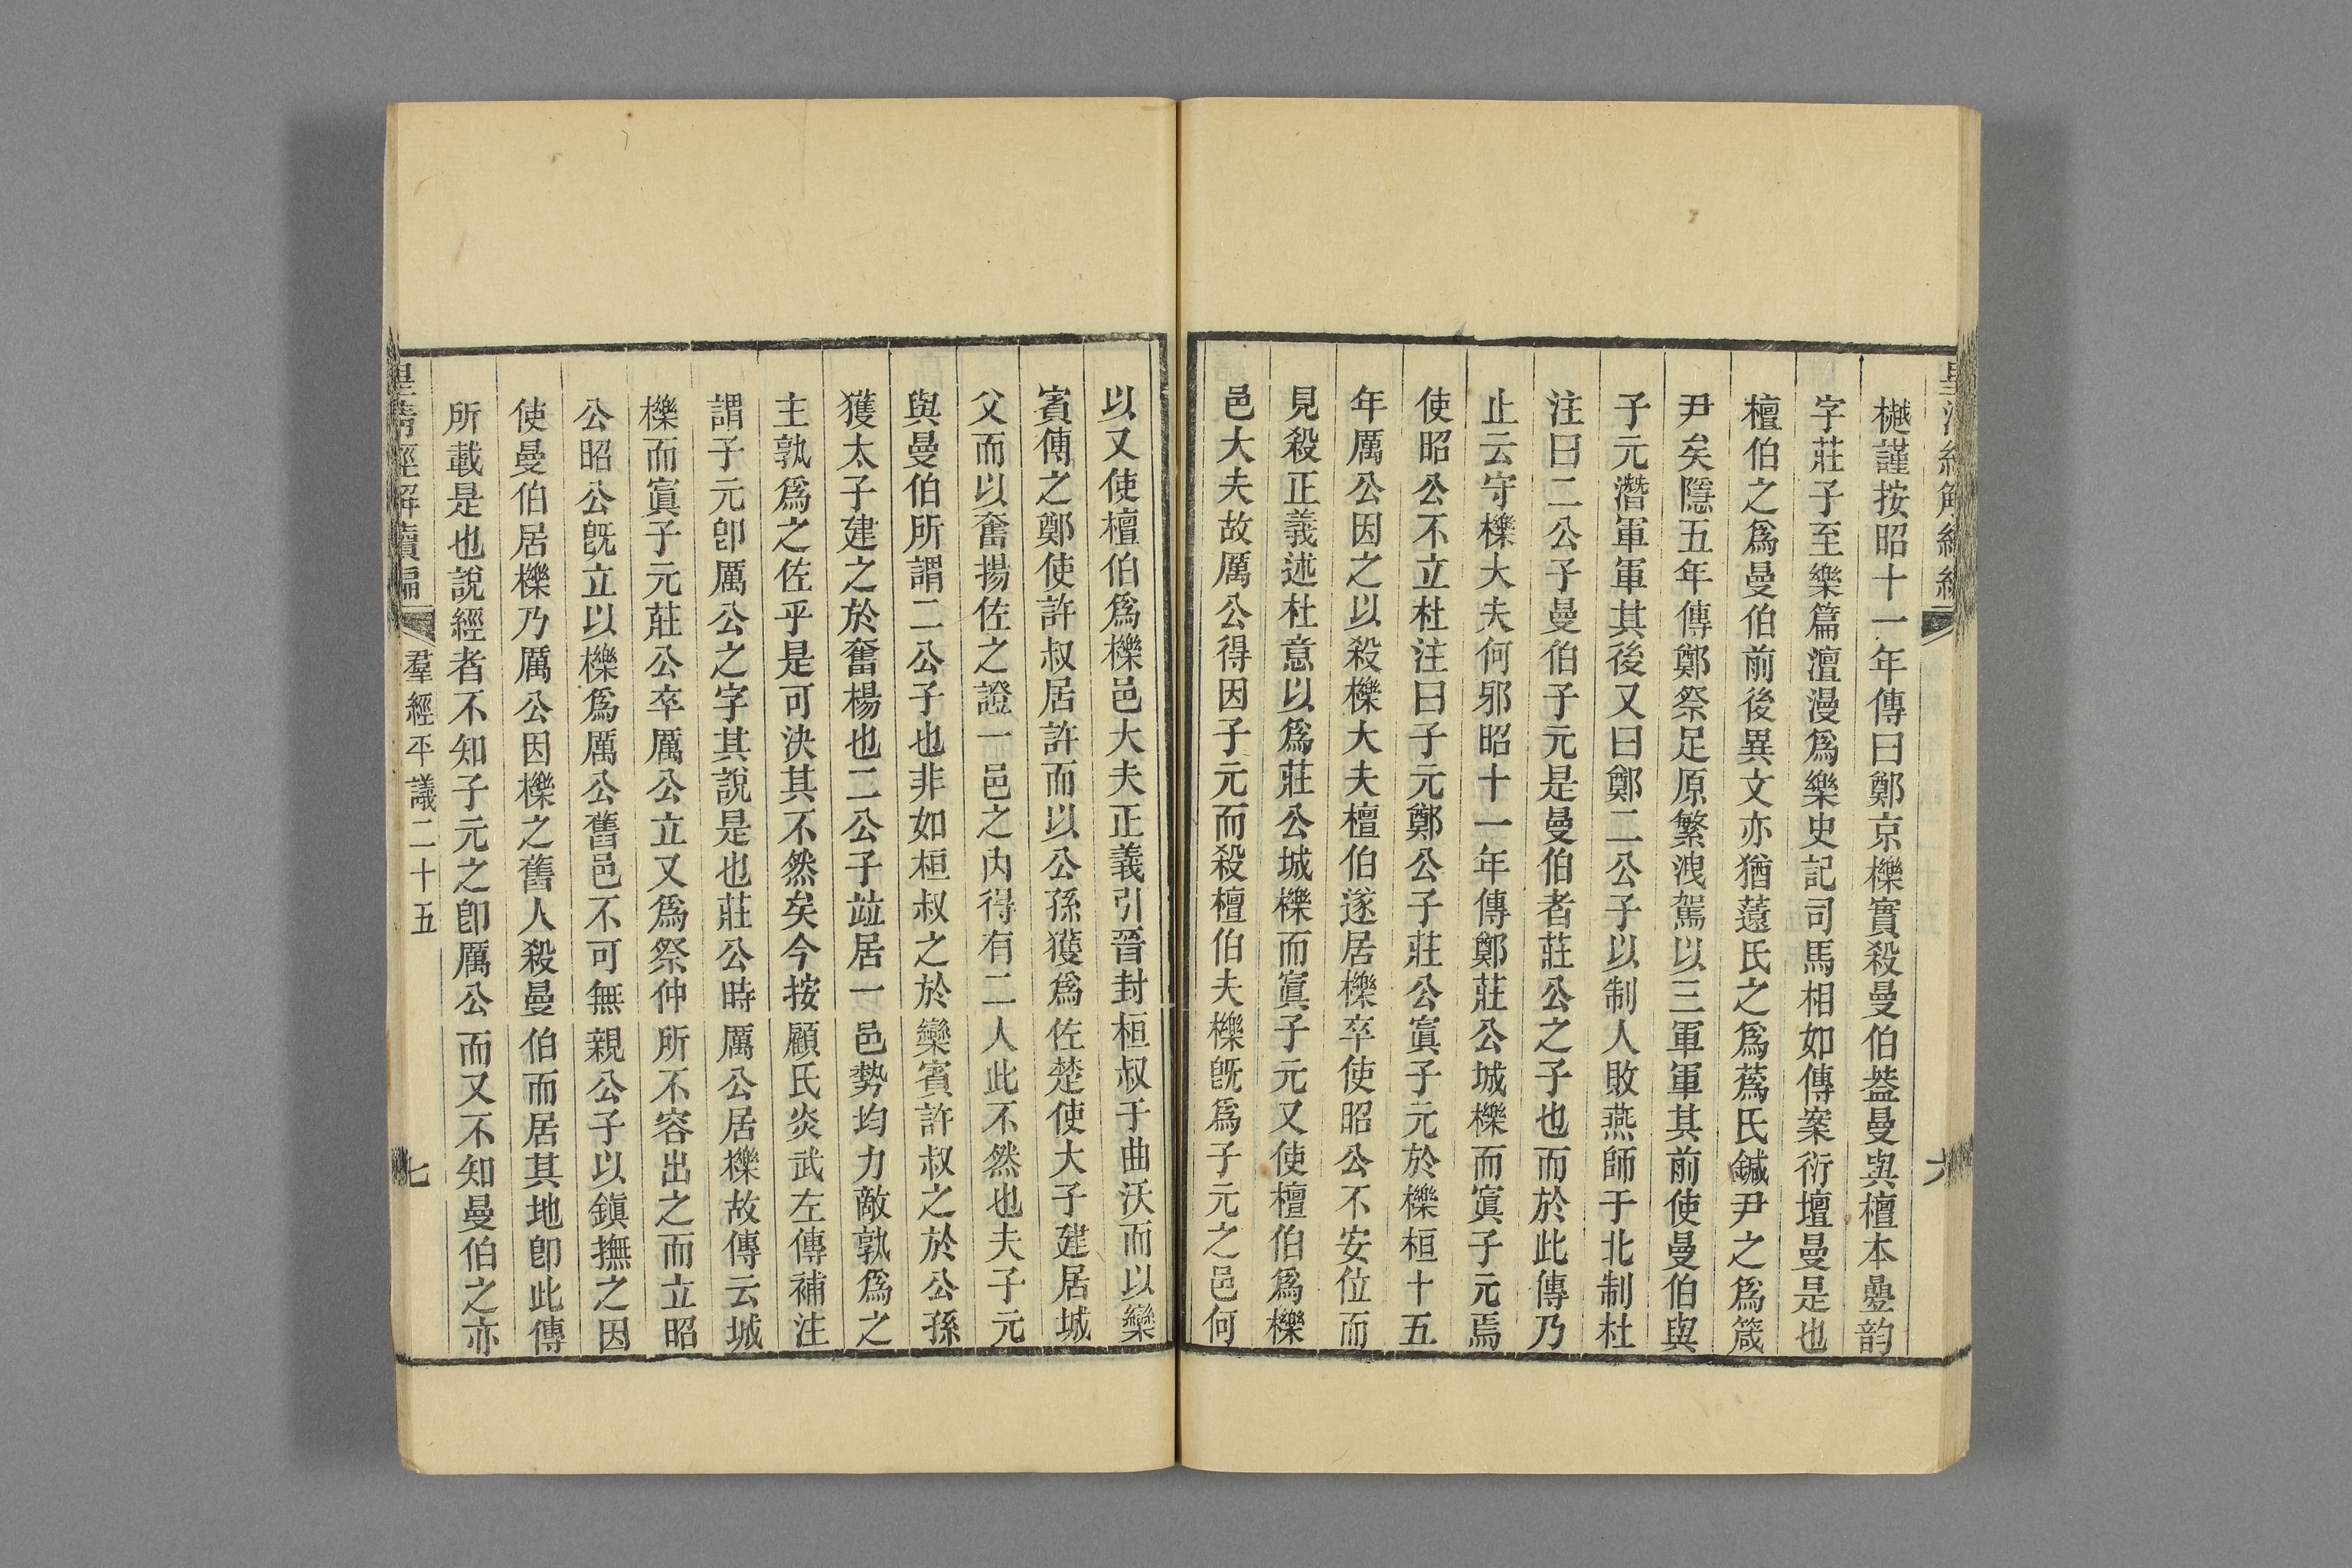 樾謹按昭十一年傳曰鄭京櫟實殺曼伯葢曼與檀本㬪韵
字莊子至樂篇澶漫爲樂史記司馬相如傳案衍壇曼是也
檀伯之爲曼伯前後異文亦猶薳氏之爲蔿氏鍼尹之爲箴
尹矣隱五年傳鄭祭足原繁洩駕以三軍軍其前使曼伯與
子元潛軍軍其後又曰鄭二公子以制人敗燕師于北制杜
注曰二公子曼伯子元是曼伯者莊公之子也而於此傳乃
止云守櫟大夫何邪昭十一年傳鄭莊公城櫟而寘子元焉
使昭公不立杜注曰子元鄭公子莊公寘子元於櫟桓十五
年厲公因之以殺櫟大夫檀伯遂居櫟卒使昭公不安位而
見殺正義述杜意以爲莊公城櫟而寘子元又使檀伯爲櫟
邑大夫故厲公得因子元而殺檀伯夫櫟旣爲子元之邑何
以又使檀伯爲櫟邑大夫正義引晉封桓叔于曲沃而以欒
賓傅之鄭使許叔居許而以公孫獲爲佐楚使大子建居城
父而以奮揚佐之證一邑之內得有二人此不然也夫子元
與曼伯所謂二公子也非如桓叔之於欒賓許叔之於公孫
獲太子建之於奮楊也二公子竝居一邑勢均力敵孰爲之
主孰爲之佐乎是可決其不然矣今按顧氏炎武左傳補注
謂子元卽厲公之字其說是也莊公時厲公居櫟故傳云城
櫟而寘子元莊公卒厲公立又爲祭仲所不容出之而立昭
公昭公旣立以櫟爲厲公舊邑不可無親公子以鎭撫之因
使曼伯居櫟乃厲公因櫟之舊人殺曼伯而居其地卽此傳
所載是也說經者不知子元之卽厲公而又不知曼伯之亦
皇清經解續編
羣經平議二十五
七